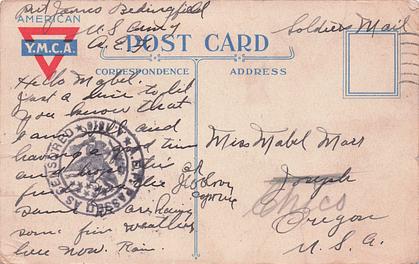 Pvt James Bedingfield
U.S. Army
A.E.F.
Soldiers Mail
AMERICAN
Y.M.C.A.
POST CARD
CORRESPONDENCE
ADDRESS
Hello Mabel.
Just a line to let
you know that
I am well and
having a good time
and hope this
finds you the
same. are having
some fine weather
here now. Rain.
A.E.F. PASSED AS CENSORED
Miss Mabel Mars
Joseph
Chico
Oregon
U.S.A.